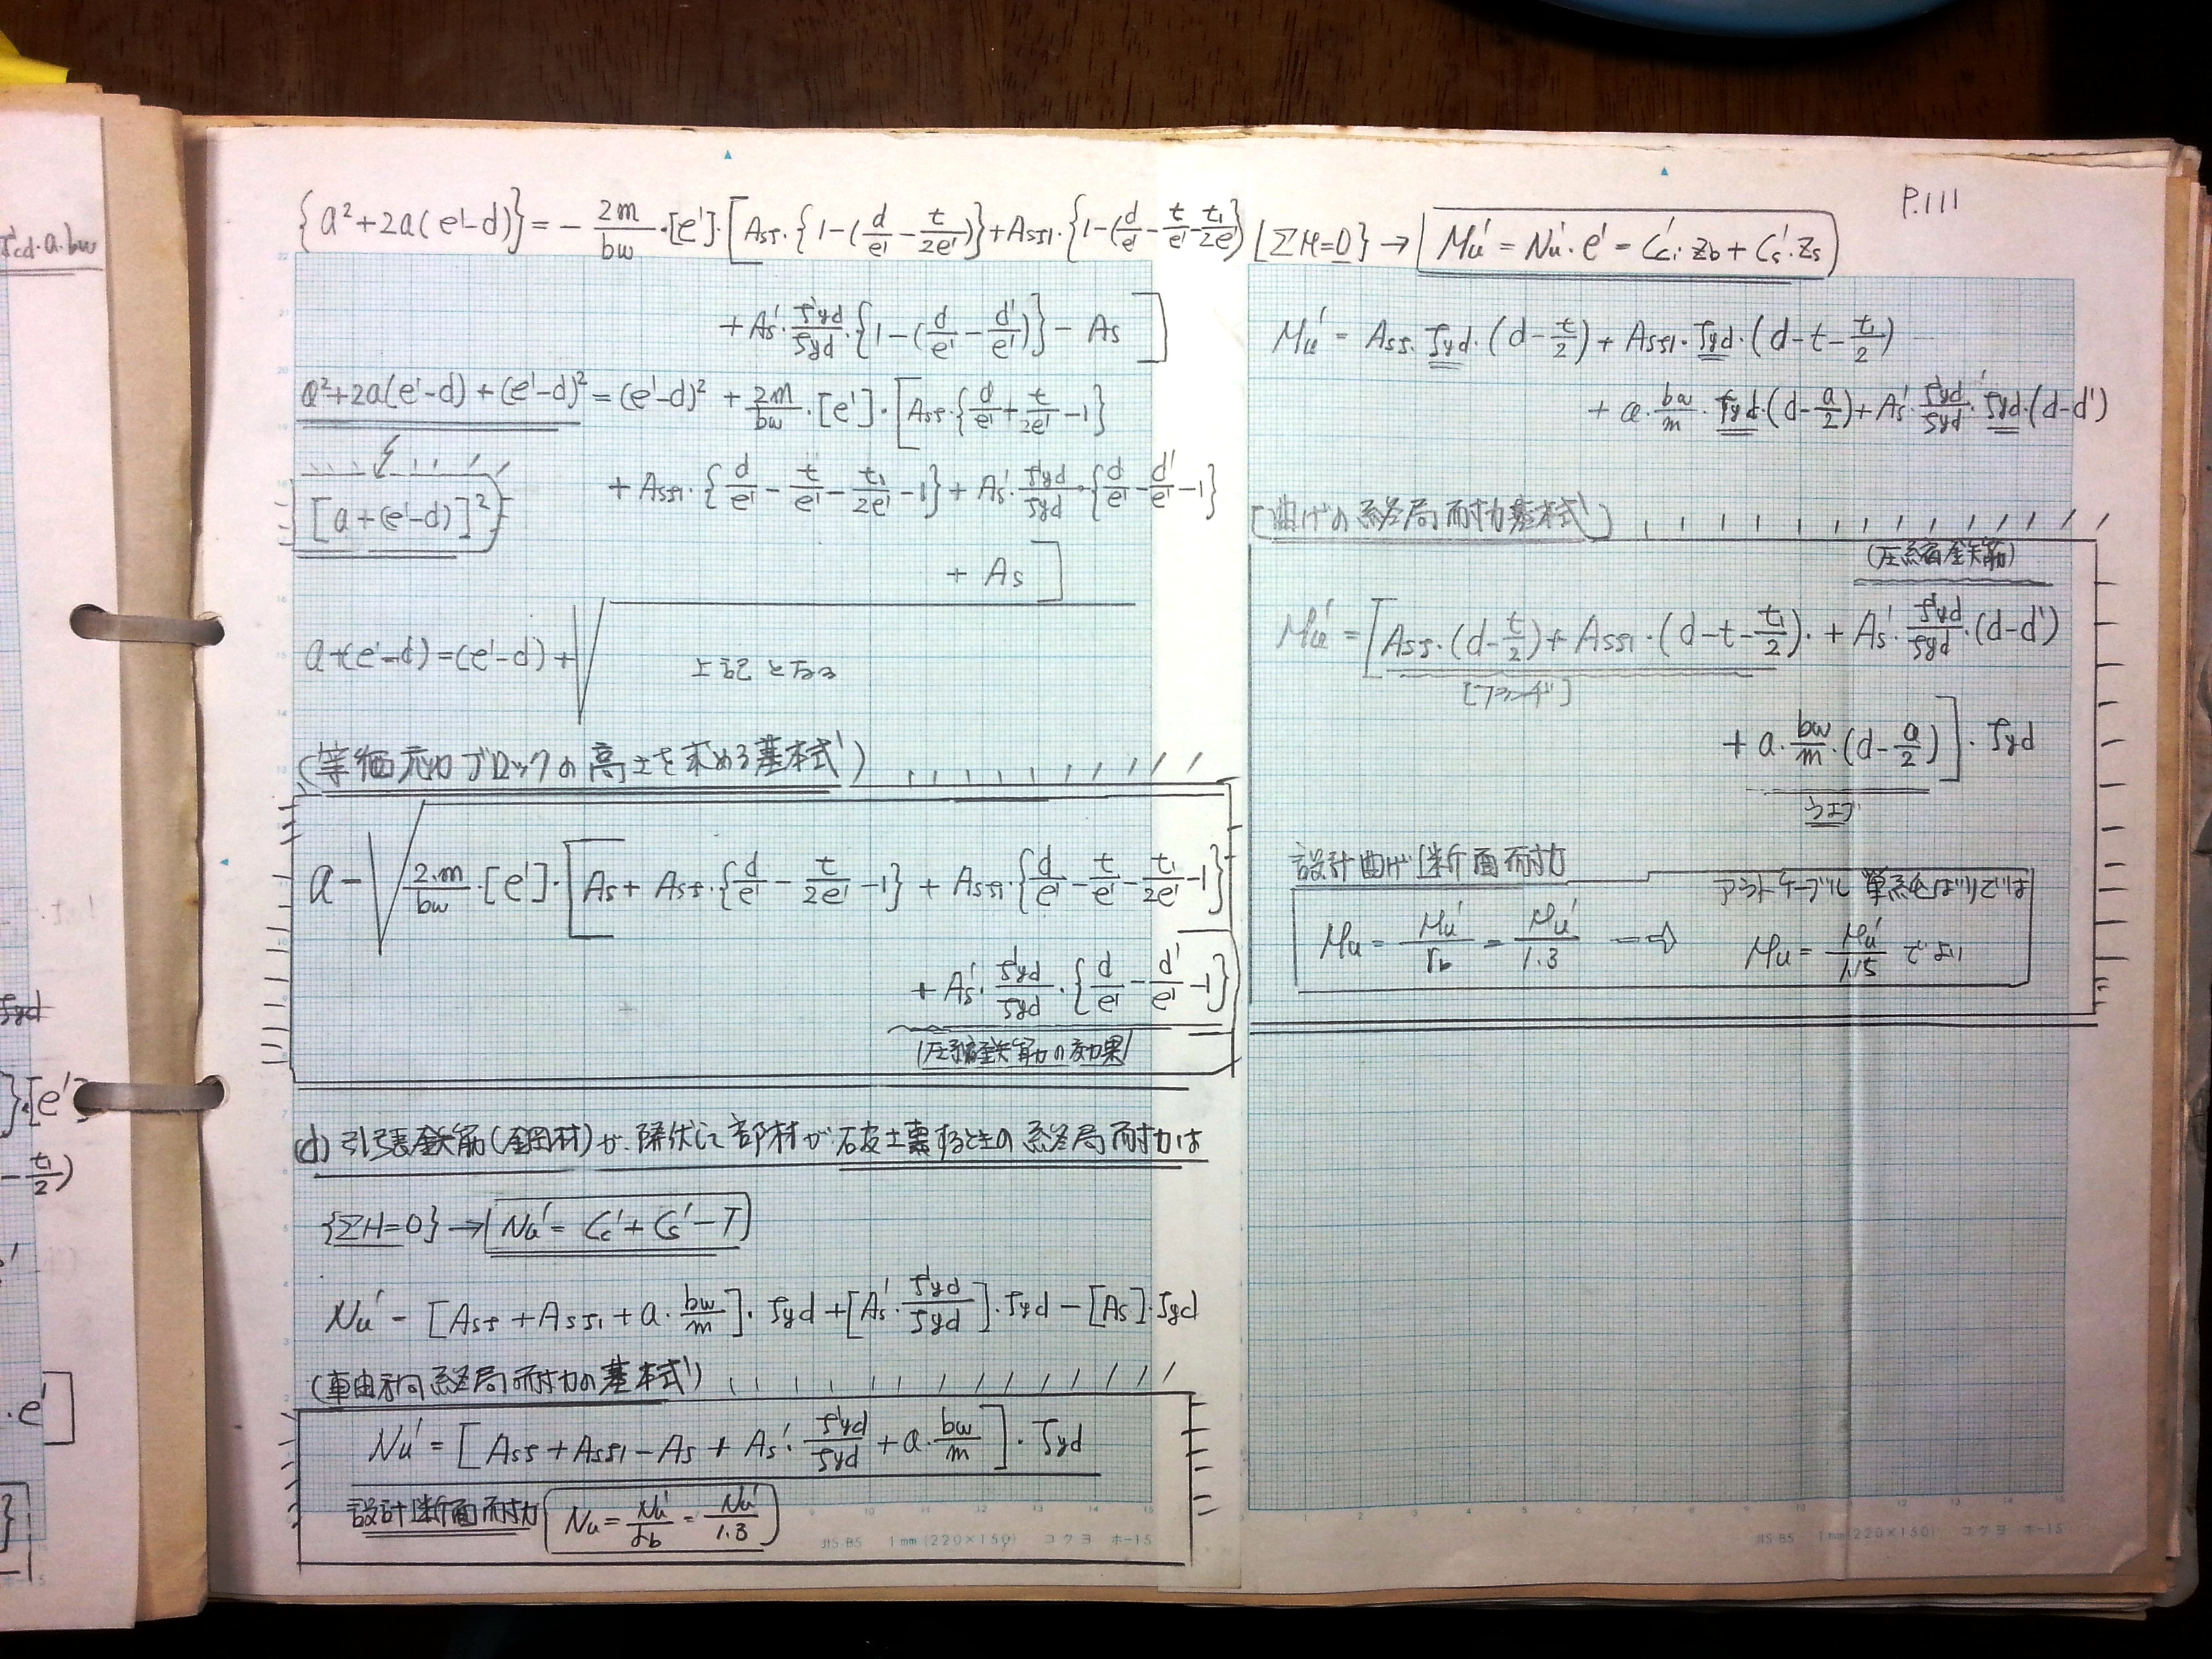 P.111
{a²+2a(e'-d)} = - 2m/bw・[e']・[Asf・{1-(d/e' - t/2e')}+Asf1・{1-(d/e' - t/e' - t1/2e')}
+ As'・f'yd/fyd・{1-(d/e' - d'/e')} - As]
a²+2a(e'-d)+(e'-d)² = (e'-d)² + 2m/bw・[e']・[Asf・{d/e' + t/2e' -1}
[a+(e'-d)]²
+ Asf1・{d/e' - t/e' - t1/2e' -1} + As'・f'yd/fyd・{d/e' - d'/e' -1}
+ As]
a+(e'-d)=(e'-d)+√ 上記となる
(等価応力ブロックの高さを求める基本式)
a - √ 2・m/bw・[e']・[As + Asf・{d/e' - t/2e' -1} + Asf1・{d/e' - t/e' - t1/2e' -1}
+ As'・f'yd/fyd・{d/e' - d'/e' -1}
(圧縮鉄筋の効果)
(d) 引張鉄筋(鋼材)が降伏して部材が破壊するときの終局耐力は
{ΣH=0} → Nu' = Cc' + Cs' - T
Nu' = [Asf + Asf1 + a・bw/m]・fyd + [As'・f'yd/fyd]・fyd - [As]・fyd
(軸方向終局耐力の基本式)
Nu' = [Asf + Asf1 - As + As'・f'yd/fyd + a・bw/m]・fyd
設計断面耐力 (Nu = Nu'/γb = Nu'/1.3)
JIS-B5 1mm(220×150) コクヨ ホ-15
[ΣM=0} → Mu' = Nu'・e' = Cc'・Zb + Cs'・Zs
Mu' = Asf・fyd・(d - t/2) + Asf1・fyd・(d - t - t1/2)
+ a・bw/m・fyd・(d - a/2) + As'・f'yd/fyd・fyd・(d-d')
[曲げの終局耐力基本式]
(圧縮鉄筋)
Mu' = [Asf・(d - t/2) + Asf1・(d - t - t1/2)・ + As'・f'yd/fyd・(d-d')
[フランジ]
+ a・bw/m・(d - a/2)]・fyd
ウエブ
設計曲げ断面耐力
Mu = Mu'/γb = Mu'/1.3 ⇒
単純ばりでは
Mu = Mu'/1.15 でよい
JIS-B5 1mm(220×150) コクヨ ホ-15